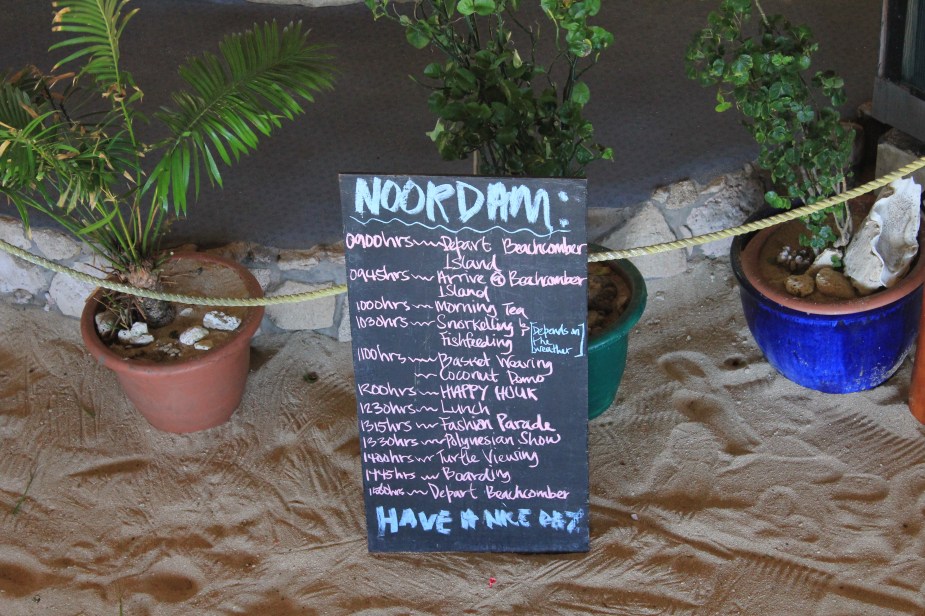 NOORDAM:
0900hrs~ Depart Beachcomber
Island
0945hrs~ Arrive @ Beachcomber
Island
1000hrs~ Morning Tea
1030hrs~ Snorkelling &
Fishfeeding [Depends on
the
weather]
1100hrs~ Basket Wearing
~ Coconut Demo
1200hrs~ HAPPY HOUR
1230hrs~ Lunch
1315hrs~ Fashion Parade
1330hrs~ Polynesian Show
1400hrs~ Turtle Viewing
1445hrs~ Boarding
1500hrs~ Depart Beachcomber
HAVE A NICE DAY